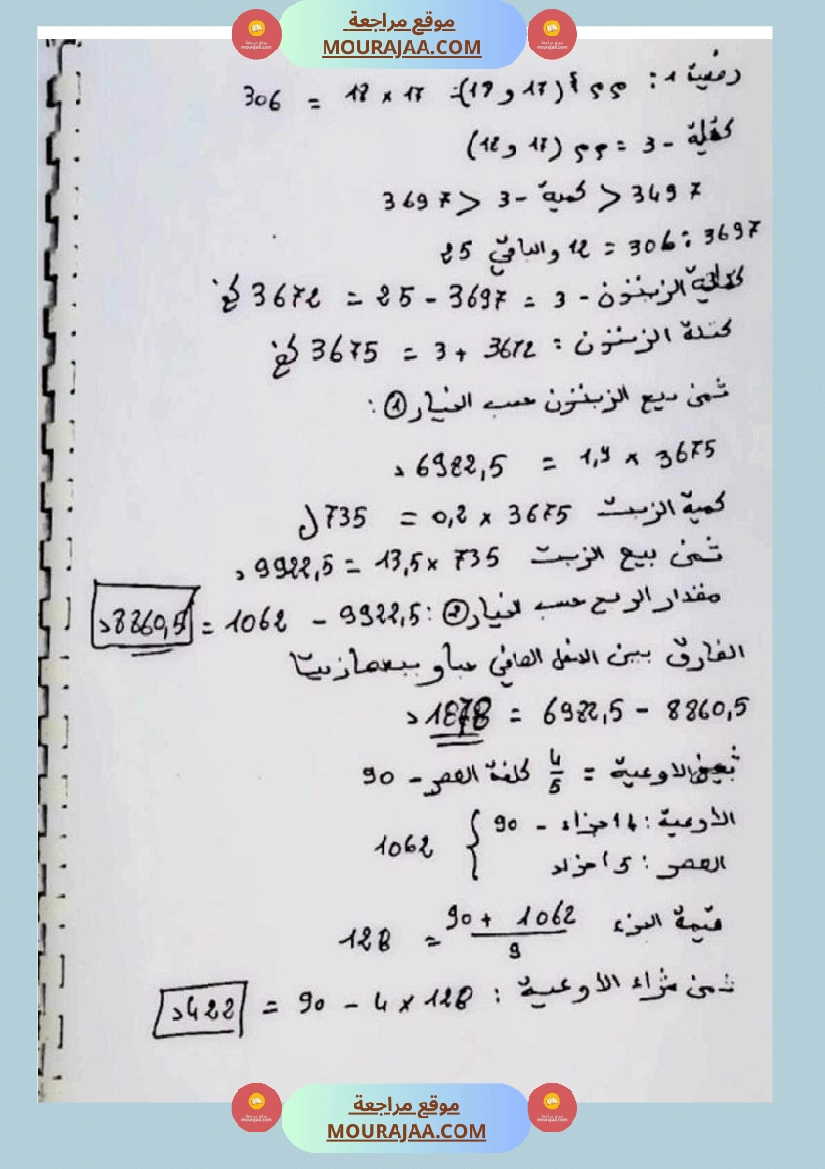 موقع مراجعة
MOURAJAA.COM
وضعية 1: م م أ (17 و 18) = 17 × 18 = 306
كتلة - 3 = م م (17 و 18)
3497 < كمية - 3 < 3697
3697 : 306 = 12 والباقي 25
كتلة الزيتون - 3 = 3697 - 25 = 3672 كغ
كتلة الزيتون : 3672 + 3 = 3675 كغ
ثمن بيع الزيتون حسب الخيار ① :
3675 × 1,9 = 6982,5 د
كمية الزيت 3675 × 0,2 = 735 ل
ثمن بيع الزيت 735 × 13,5 = 9922,5 د
مقدار الربح حسب الخيار ② : 9922,5 - 1062 = 8860,5 د
الفارق بين الدخل الصافي حبا وبيعها زيتا
8860,5 - 6982,5 = 1878 د
ثمن الأوعية = 4/5 كلفة العصر - 90
الأوعية : 4 أجزاء - 90
العصر : 5 أجزاء } 1062
قيمة الجزء 1062 + 90 / 9 = 128
ثمن شراء الأوعية : 128 × 4 - 90 = 422 د
موقع مراجعة
MOURAJAA.COM